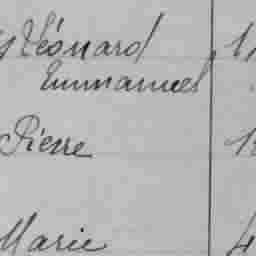 Léonard
Emmanuel
Pierre
Marie 4